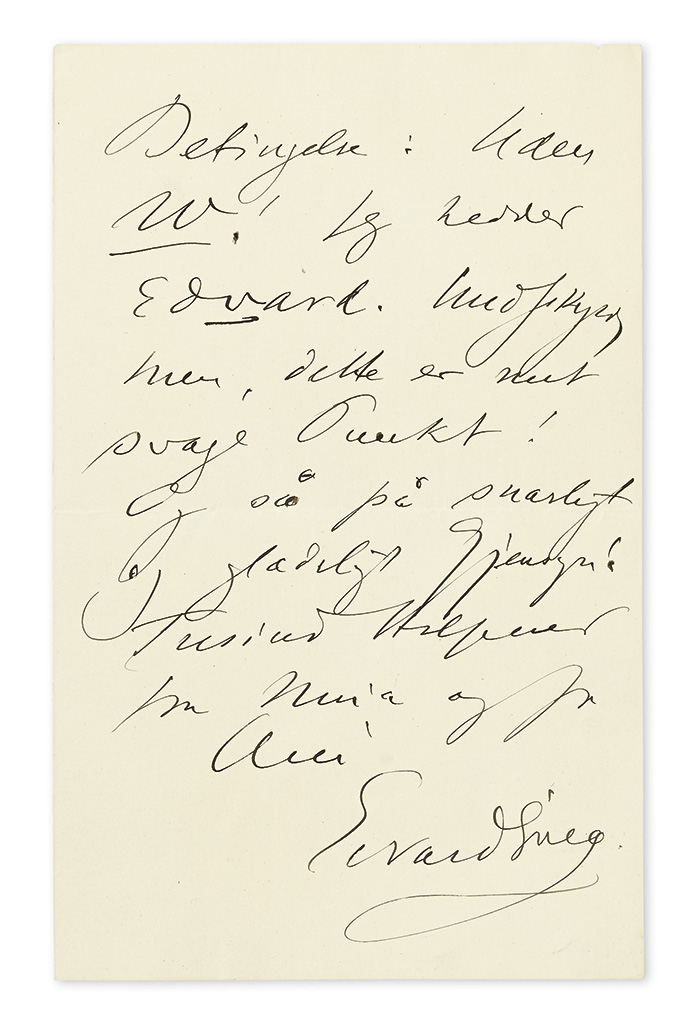 Betingelse: Uden
W! Jeg hedder
Edvard. Undskyld
men, dette er mit
svage Punkt!
Og så på snarligt
og glædeligt Gjensyn!
Tusind Hilsener
fra Nina og fra
Din
Edvard Grieg.